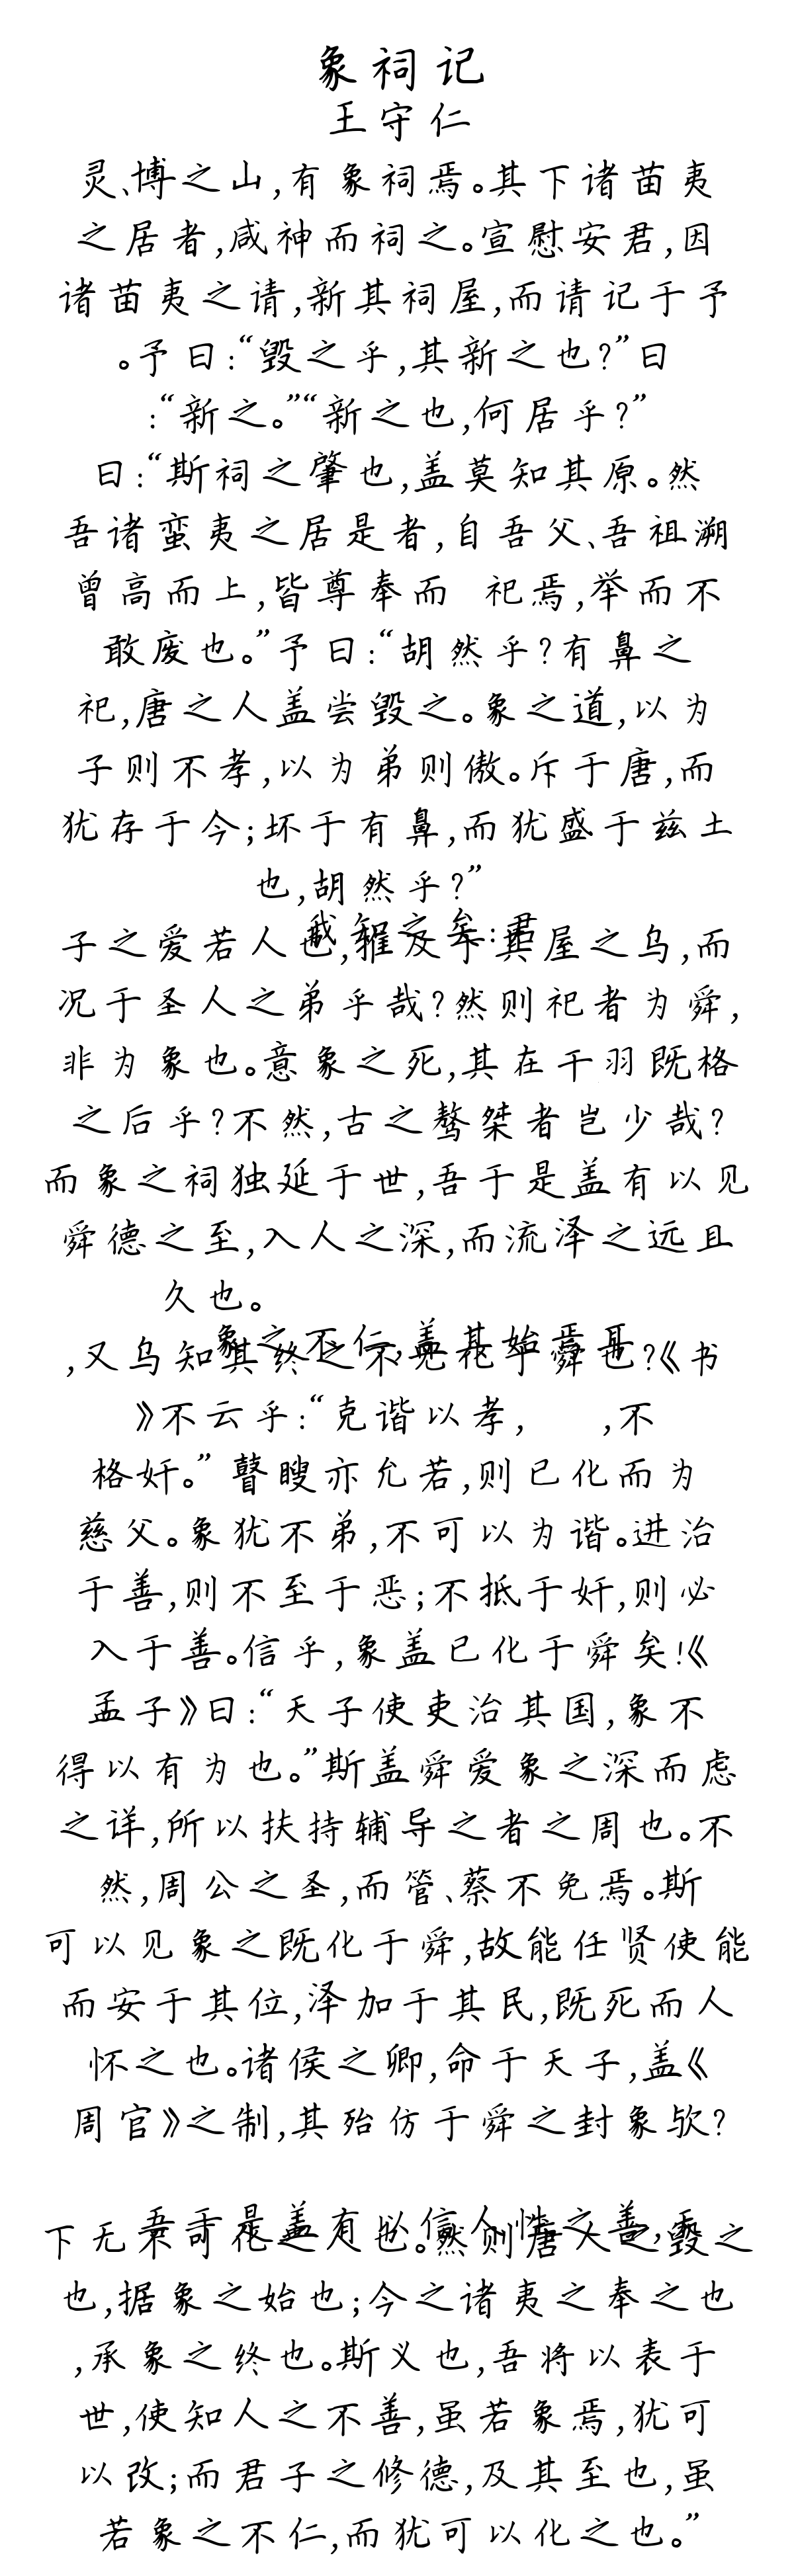 象祠记
王守仁
灵、博之山,有象祠焉。其下诸苗夷
之居者,咸神而祠之。宣慰安君,因
诸苗夷之请,新其祠屋,而请记于予
。予曰:“毁之乎,其新之也?”曰
:“新之。”“新之也,何居乎?”
曰:“斯祠之肇也,盖莫知其原。然
吾诸蛮夷之居是者,自吾父、吾祖溯
曾高而上,皆尊奉而 祀焉,举而不
敢废也。”予曰:“胡然乎?有鼻之
祀,唐之人盖尝毁之。象之道,以为
子则不孝,以为弟则傲。斥于唐,而
犹存于今;坏于有鼻,而犹盛于兹土
也,胡然乎?”
我知之矣:君
子之爱若人也,推及于其屋之乌,而
况于圣人之弟乎哉?然则祀者为舜,
非为象也。意象之死,其在干羽既格
之后乎?不然,古之骜桀者岂少哉?
而象之祠独延于世,吾于是盖有以见
舜德之至,入人之深,而流泽之远且
久也。
象之不仁,盖其始焉耳
,又乌知其终之不见化于舜也?《书
》不云乎:“克谐以孝, ,不
格奸。”瞽瞍亦允若,则已化而为
慈父。象犹不弟,不可以为谐。进治
于善,则不至于恶;不抵于奸,则必
入于善。信乎,象盖已化于舜矣!《
孟子》曰:“天子使吏治其国,象不
得以有为也。”斯盖舜爱象之深而虑
之详,所以扶持辅导之者之周也。不
然,周公之圣,而管、蔡不免焉。斯
可以见象之既化于舜,故能任贤使能
而安于其位,泽加于其民,既死而人
怀之也。诸侯之卿,命于天子,盖《
周官》之制,其殆仿于舜之封象欤?
吾于是盖有以信人性之善,天
下无不可化之人也。然则唐人之毁之
也,据象之始也;今之诸夷之奉之也
,承象之终也。斯义也,吾将以表于
世,使知人之不善,虽若象焉,犹可
以改;而君子之修德,及其至也,虽
若象之不仁,而犹可以化之也。”